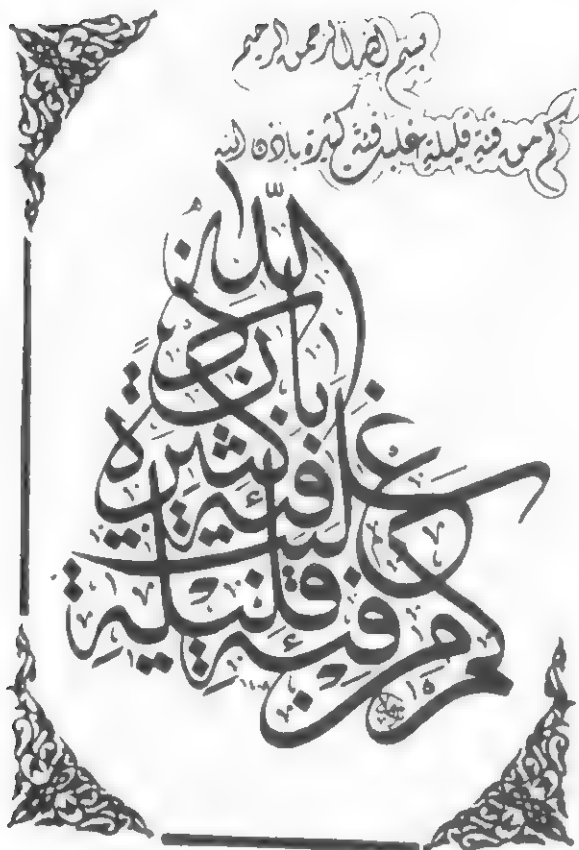 بسم الله الرحمن الرحيم
كم من فئة قليلة غلبت فئة كثيرة بإذن الله
كم من فئة قليلة غلبت فئة كثيرة بإذن الله